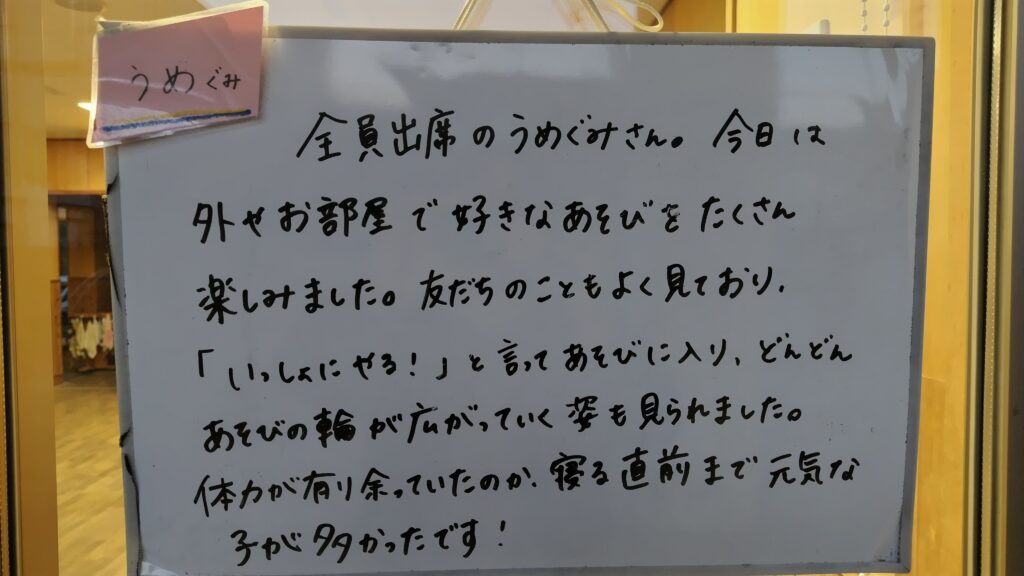 うめぐみ
全員出席のうめぐみさん。今日は
外やお部屋で好きなあそびをたくさん
楽しみました。友だちのこともよく見ており、
「いっしょにやる！」と言ってあそびに入り、どんどん
あそびの輪が広がっていく姿も見られました。
体力が有り余っていたのか、寝る直前まで元気な
子が多かったです！